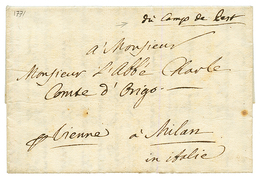 1771
du Camp de Pest
à Monsieur
Monsieur L'Abbé Charle
Comte d'Origo
pr Vienne à Milan
in italie